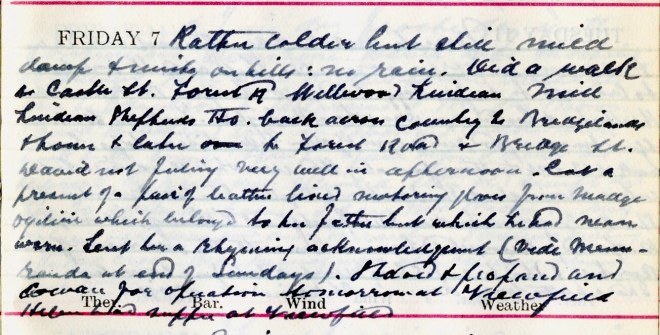 FRIDAY 7 Rather colder but still mild
damp & misty on hills: no rain. Did a walk
Castle St. Forest Rd Wellwood Lindean Mill
Lindean Shepherds Ho. back across country to Bridgelands
& home & later to Forest Road & Bridge St.
David not feeling very well in afternoon. Got a
present of a pair of leather lined motoring gloves from Madge
Ogilvie which belonged to her father but which he had never
worn. Sent her a rhyming acknowledgment (Vide Memo-
randa at end of Sundays). Shaved & prepared
Cowan for operation tomorrow at Viewfield
Ther. Bar. Wind Weather
Helen had supper at Viewfield